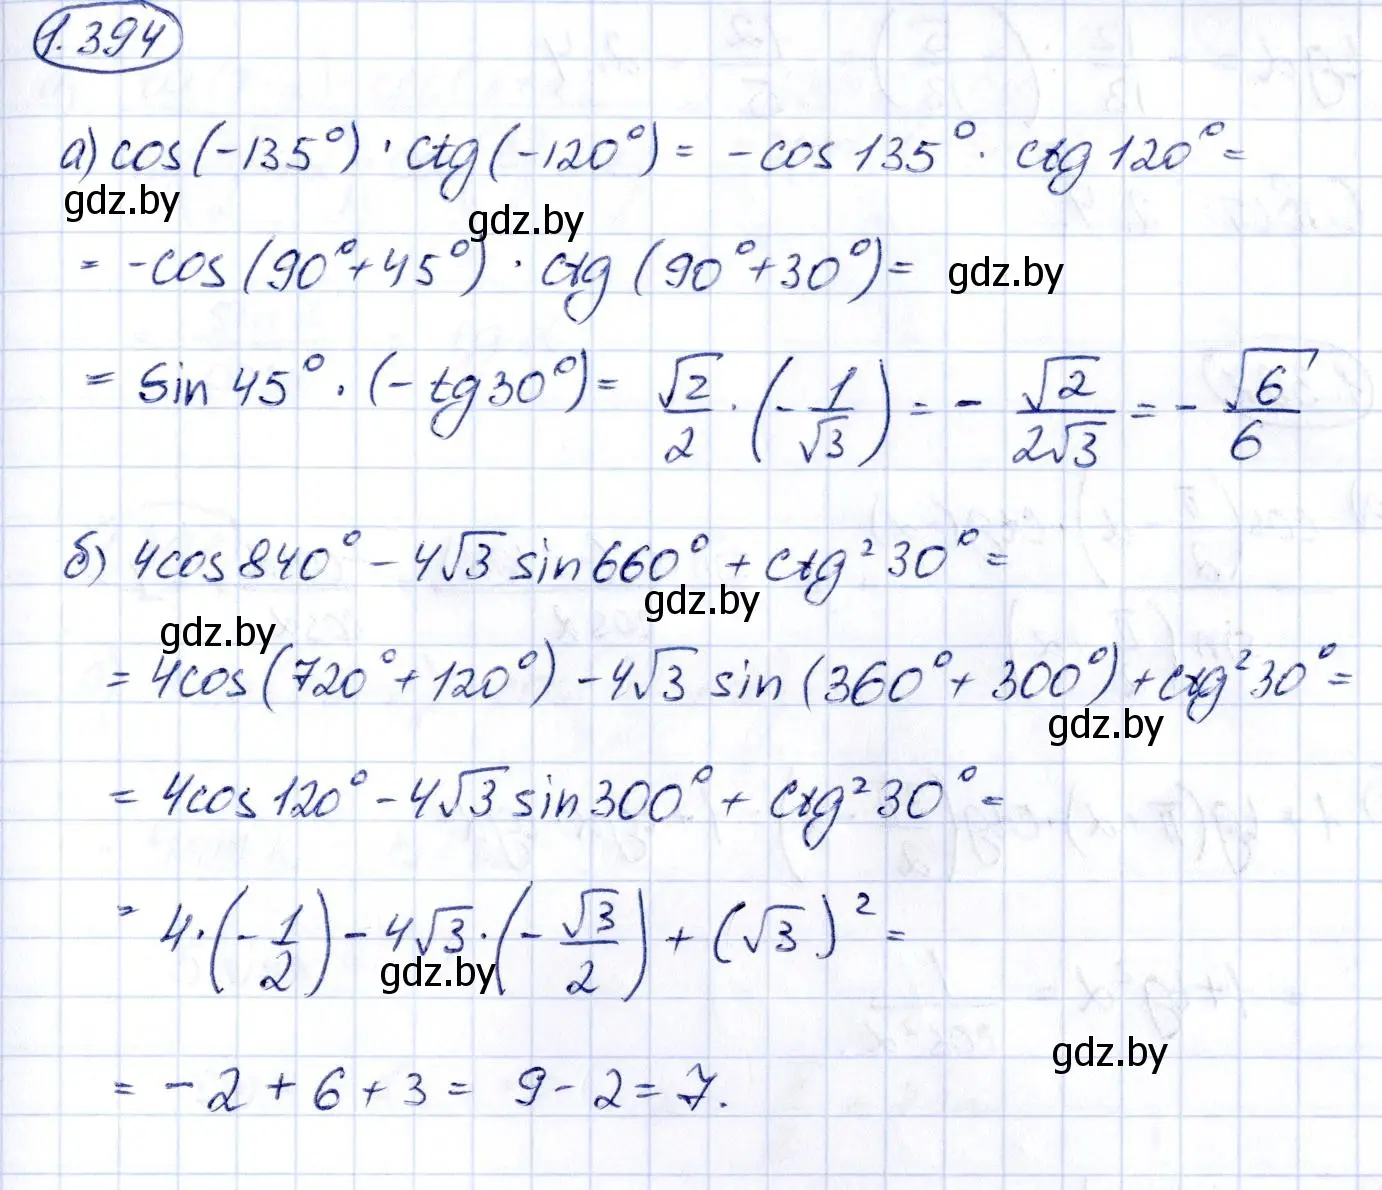 1.394
а) cos(-135°) · ctg(-120°) = -cos 135° · ctg 120° =
gdz.by
gdz.by
= -cos(90°+45°) · ctg(90°+30°) =
gdz.by
= sin 45° · (-tg 30°) = √2/2 · (-1/√3) = - √2/(2√3) = - √6/6
б) 4cos 840° - 4√3 sin 660° + ctg² 30° =
gdz.by
gdz.by
= 4cos(720°+120°) - 4√3 sin(360°+300°) + ctg² 30° =
gdz.by
= 4cos 120° - 4√3 sin 300° + ctg² 30° =
= 4·(-1/2) - 4√3·(-√3/2) + (√3)² =
gdz.by
gdz.by
= -2 + 6 + 3 = 9 - 2 = 7.